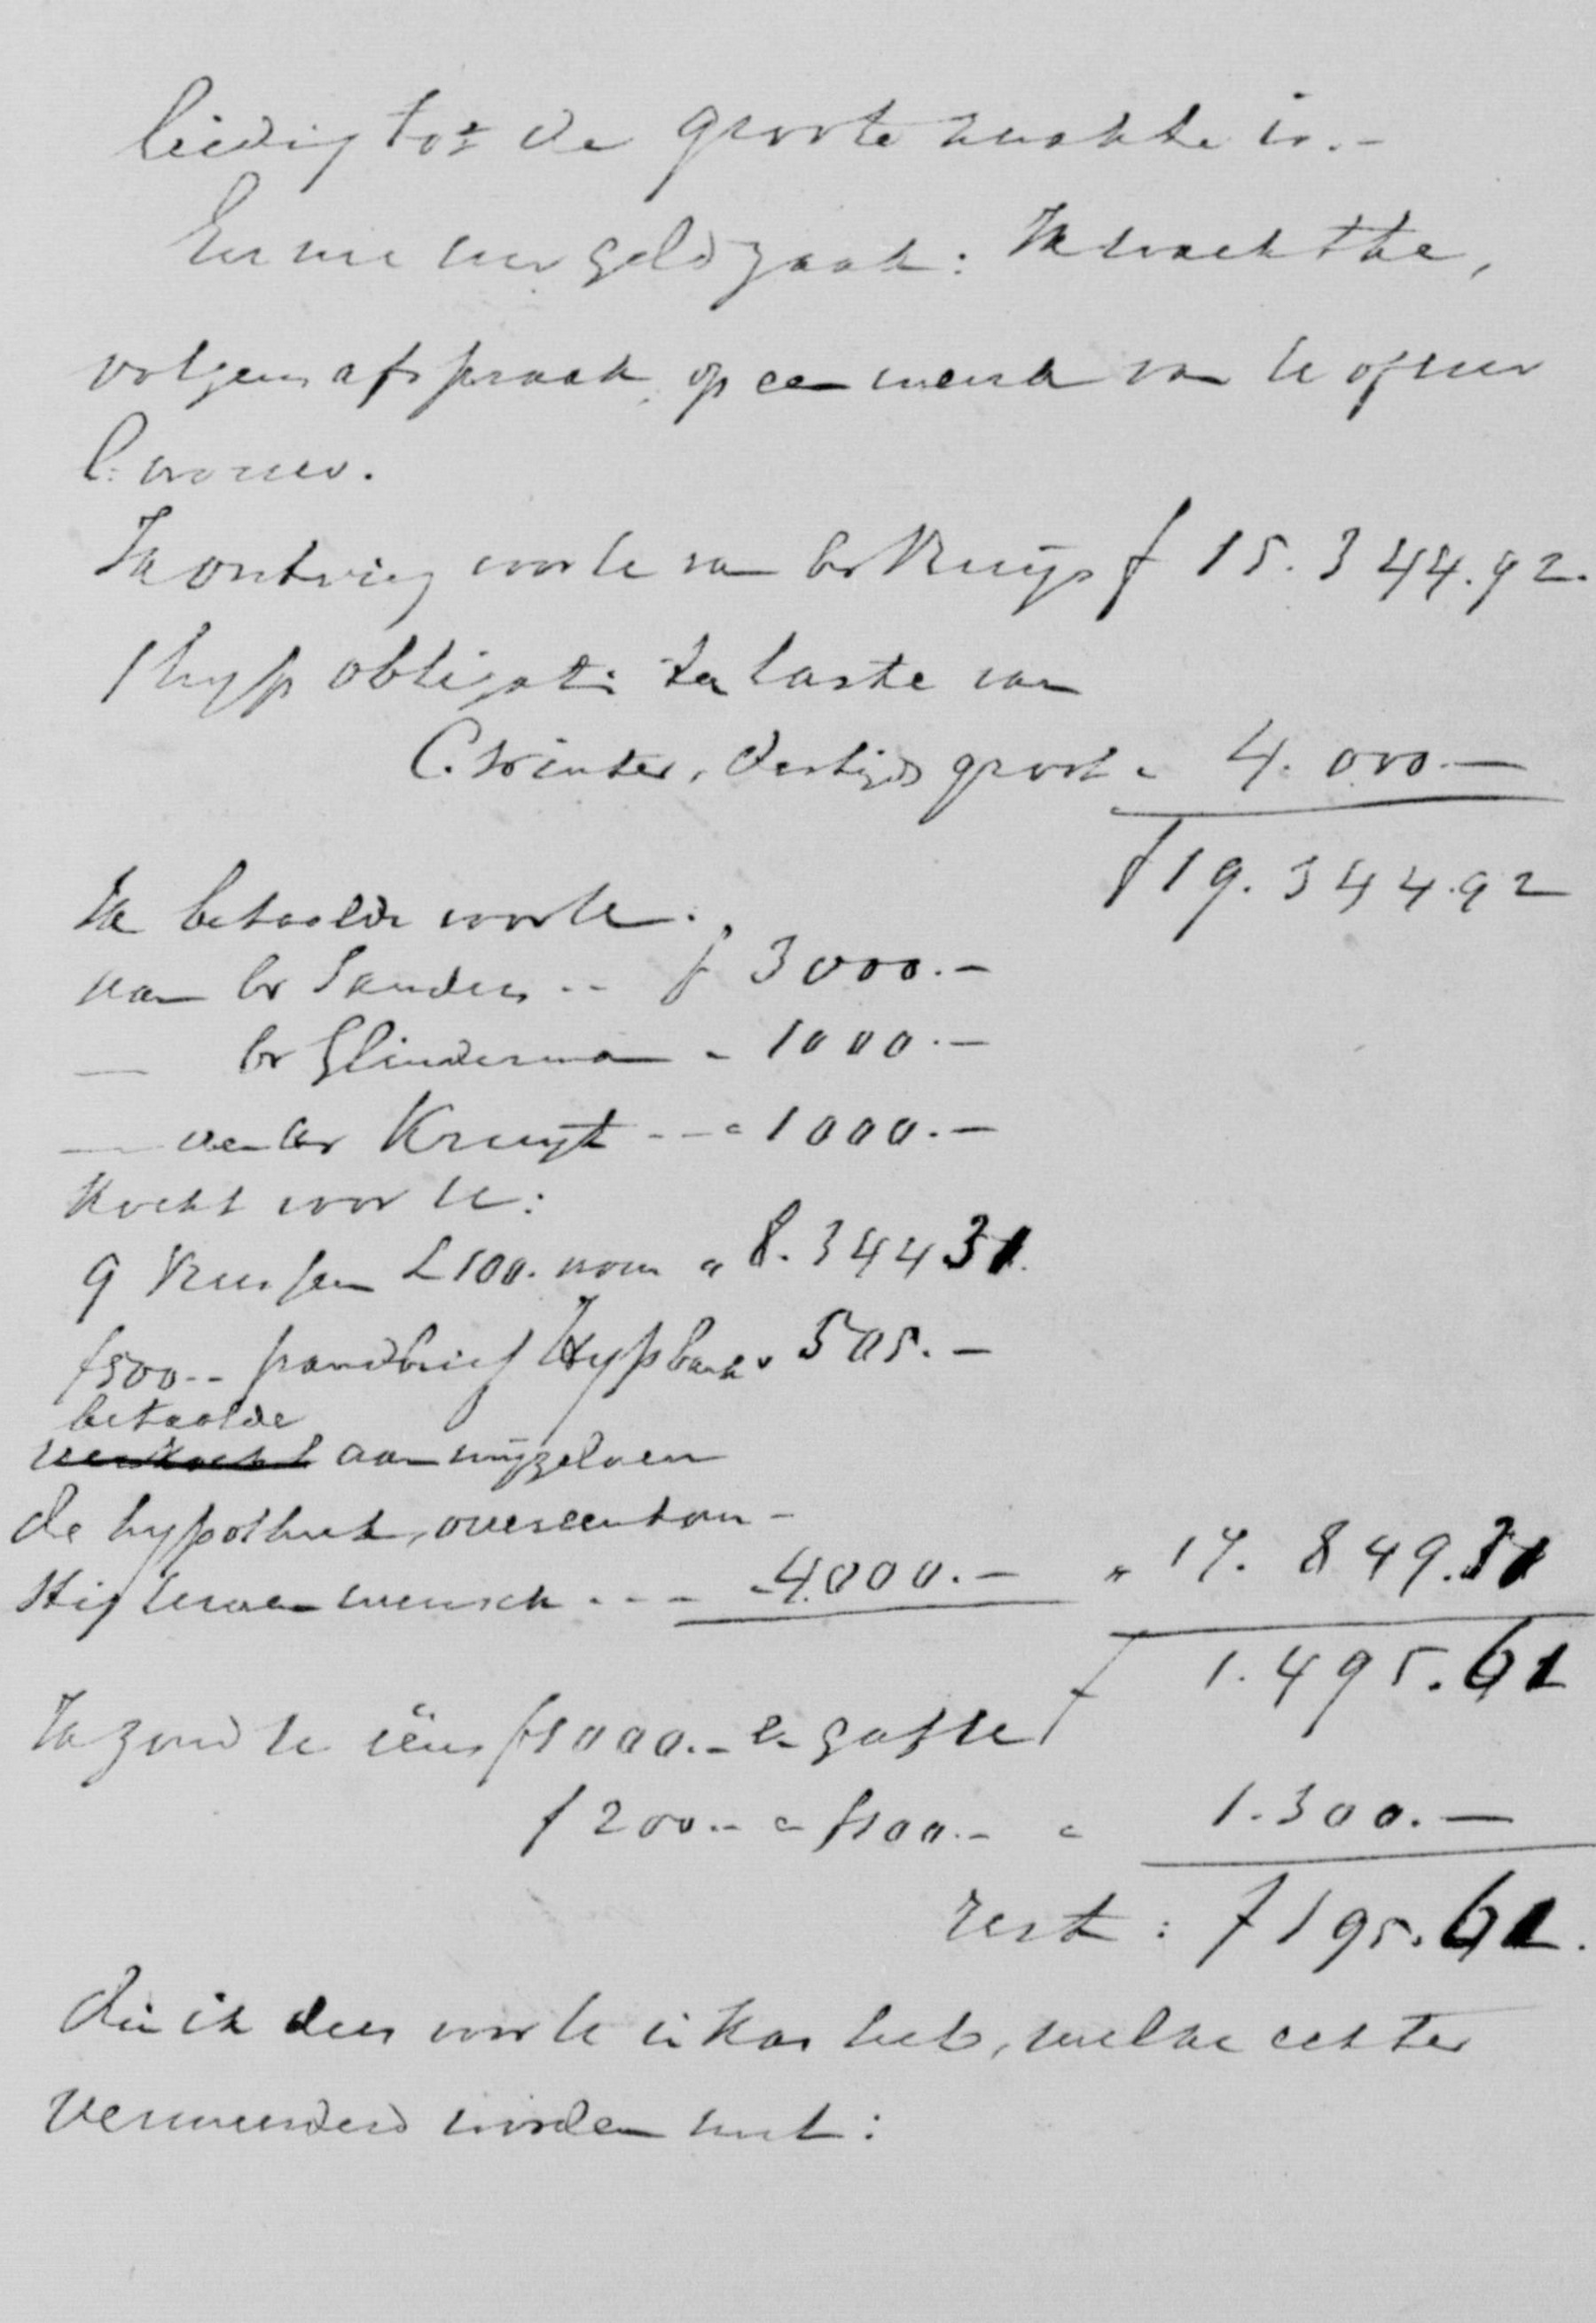 tot de groote zwakte is.-
En nu uw geldzaak: Ik wachtte,
volgens afspraak, op een wenk van U of uw
Ik ontving voor U van br Kruijs f 15.344.92.
1 hyp obligatie ten laste van
C. Winter, destijds groot " 4.000.—
f 19.344.92
Ik betaalde voor U:
aan br Sanders .. f 3000.-
— br Glinderman " 1000.-
— den br Kruyt --" 1000.-
Kocht voor U:
9 Russen £100. nom " 8.344 31.
f500.- pandbrief Hypbank " 505.-
betaalde
aan mijzelven
de hypotheek, overeenkom-
stig Uwen wensch ... - 4.000.- " 17.849.31
f 1.495.61
Ik zond U eens f1000.- en gaf U
f 200.- " f100.- " 1.300.—
rest: f 195.61.
die ik dus voor U in Kas heb, welke echter
vermeerderd worden met: